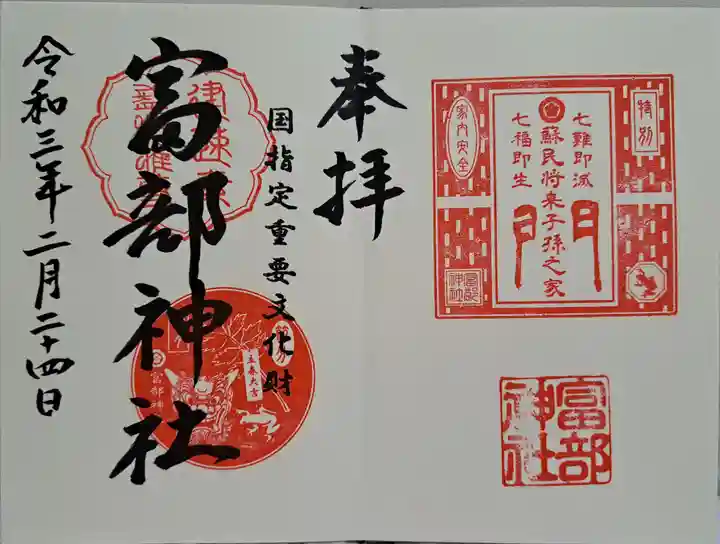 特別
七難即滅
蘇民将来子孫之家
七福即生
門
家内安全
富部神社
富部神社
奉拝
国指定重要文化財
富部神社
立春大吉
富部神
令和三年二月二十四日